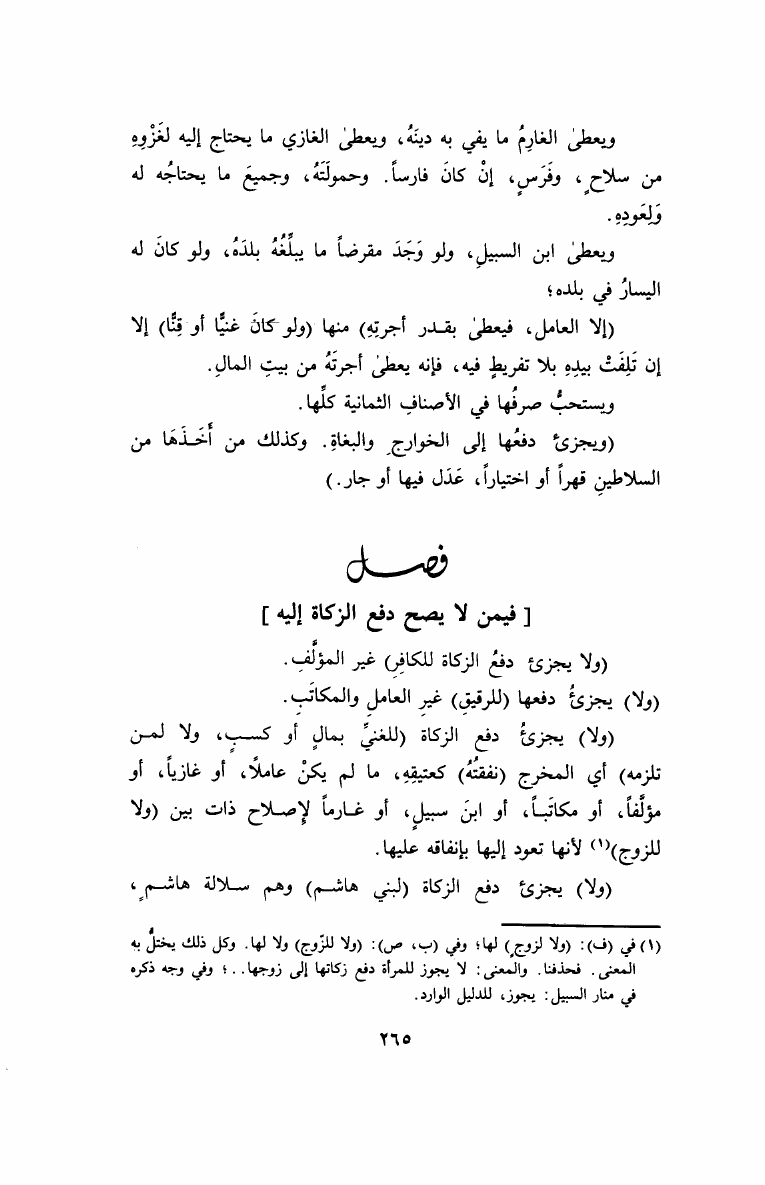 ويعطىٰ الغارِمُ ما يفي به دينَهُ، ويعطىٰ الغازي ما يحتاج إليه لغَزْوِهِ
من سلاحٍ، وفَرَسٍ، إنْ كانَ فارساً. وحمولَتَهُ، وجميعَ ما يحتاجُه له
وَلِعَودِهِ.
ويعطىٰ ابن السبيلِ، ولو وَجَدَ مقرضاً ما يبلِّغُهُ بلدَهُ، ولو كانَ له
اليسارُ في بلده؛
(إلا العامل، فيعطىٰ بقدر أجرتِهِ) منها (ولو كانَ غنيًّا أو قِنًّا) إلا
إن تَلِفَتْ بيدِهِ بلا تفريطٍ فيه، فإنه يعطىٰ أجرتَهُ من بيتِ المالِ.
ويستحبُّ صرفُها في الأصنافِ الثمانية كلِّها.
(ويجزئ دفعُها إلى الخوارجِ والبغاةِ. وكذلك من أَخَذَهَا من
السلاطينِ قهراً أو اختياراً، عَدَل فيها أو جار.)
فصل
[ فيمن لا يصح دفع الزكاة إليه ]
(ولا يجزئ دفعُ الزكاة للكافِرِ) غير المؤلَّفِ.
(ولا) يجزئُ دفعها (للرقيقِ) غيرِ العاملِ والمكاتَبِ.
(ولا) يجزئُ دفع الزكاة (للغنيِّ بمالٍ أو كسبٍ، ولا لمن
تلزمه) أي المخرج (نفقتُهُ) كعتيقِهِ، ما لم يكنْ عاملاً، أو غازياً، أو
مؤلَّفاً، أو مكاتَباً، أو ابنَ سبيلٍ، أو غارماً لإِصلاح ذات بين (ولا
للزوج)(١) لأنها تعود إليها بإنفاقه عليها.
(ولا) يجزئ دفع الزكاة (لبني هاشم) وهم سلالة هاشمٍ،
(١) في (ف): (ولا لزوجٍ) لها؛ وفي (ب، ص): (ولا للزّوج) ولا لها. وكل ذلك يختلُّ به
المعنى. فحذفنا. والمعنى: لا يجوز للمرأة دفع زكاتها إلى زوجها..؛ وفي وجه ذكره
في منار السبيل: يجوز، للدليل الوارد.
٢٦٥